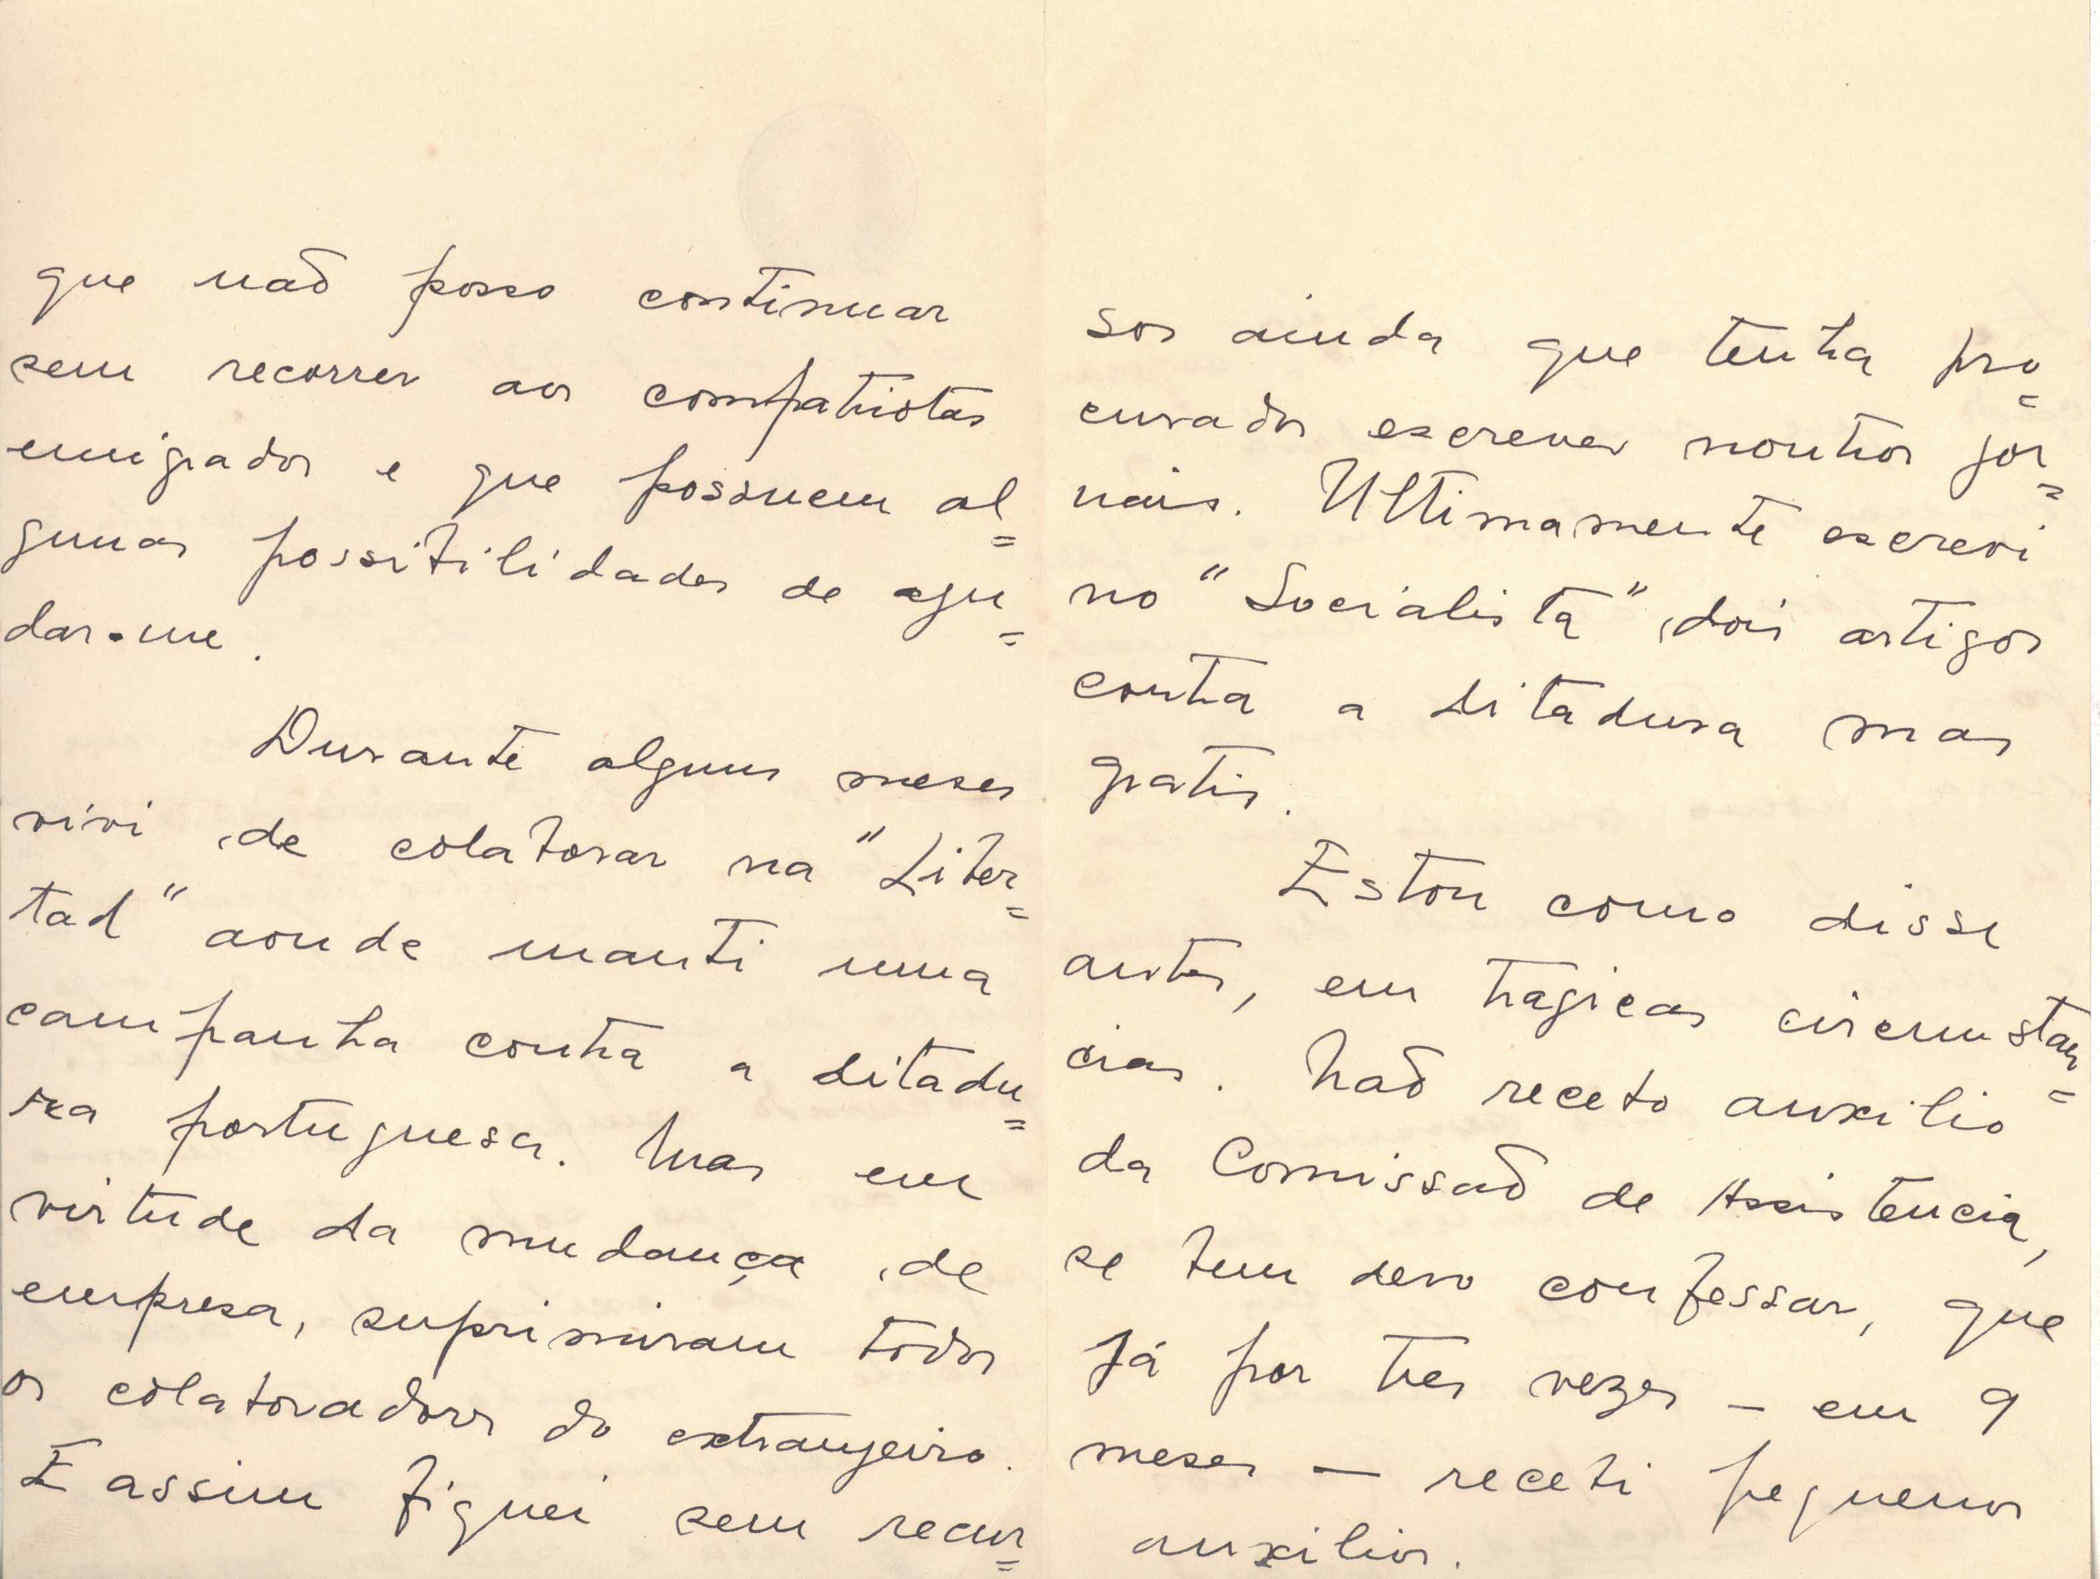 que não posso continuar
sem recorrer aos compatriotas
emigrados e que possuem al=
gumas possibilidades de aju=
dar-me.
Durante alguns meses
vivi de colaborar na "Liber=
tad" aonde manti uma
campanha contra a ditadu=
ra portuguesa. Mas em
virtude da mudança de
empresa, suprimiram todos
os colaboradores do extranjeiro.
E assim fiquei sem recur=
sos ainda que tenha pro=
curado escrever noutros jor=
nais. Ultimamente escrevi
no "Socialista", dois artigos
contra a ditadura mas
gratis.
Estou como disse
antes, em tragicas circumstan=
cias. Não recebo auxilio
da Comissão de Assistencia,
se bem devo confessar, que
já por tres vezes — em 9
meses — recebi pequenos
auxilios.